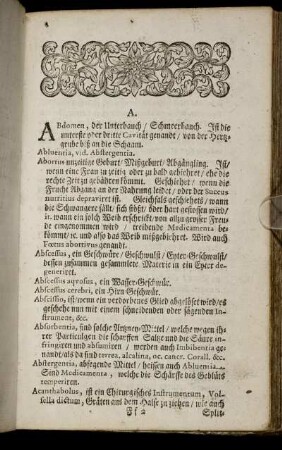 A.
ABdomen, der Unterbauch / Schmeerbauch. Ist die
unterste oder dritte Cavität genandt / von der Hertz-
grube biß an die Schaam.
Abluentia, vid. Abstergentia.
Abortus unzeitige Geburt / Mißgeburt / Abgängling. Ist /
wenn eine Frau zu zeitig oder zu bald gebiehret / ehe die
rechte Zeit zu gebähren kommt. Geschiehet / wenn die
Frucht Abgang an der Nahrung leidet / oder der Succus
nutritius depraviret ist. Gleichfals geschiehets / wann
die Schwangere fällt / sich stöst / oder hart gestossen wird /
it. wann ein solch Weib erschrickt / von allzu grosser Freu-
de eingenommen wird / treibende Medicamenta be-
kömmt / &c. und also das Weib mißgebiehret. Wird auch
Fœtus abortivus genandt.
Abscessus, ein Geschwäre / Geschwulst / Eyter-Geschwulst /
dessen zusammen gesammlete Materie in ein Eyter de-
generiret.
Abscessus aquosus, ein Wasser-Geschwür.
Abscessus cerebri, ein Hirn Geschwär.
Abscissio, ist wenn ein verdorbenes Glied abgelöset wird / es
geschehe nun mit einem schneidenden oder sägenden In-
strument, &c.
Absorbentia, sind solche Artzney-Mittel / welche wegen ih-
rer Particulgen die scharffen Saltze und die Säure in-
fringiren und absumiren / werden auch Imbibentia ge-
nandt / als da sind terrea, alcalina, oc. cancr. Corall. &c.
Abstergentia, abfegende Mittel / heissen auch Abluentia.
Sind Medicamenta, welche die Schärffe des Geblüts
temperiren.
Acanthabolus, ist ein Chirurgisches Instrumentum, Vol-
sella dictum, Gräten aus dem Halse zu ziehen / wie auch
Ff 2 Split-